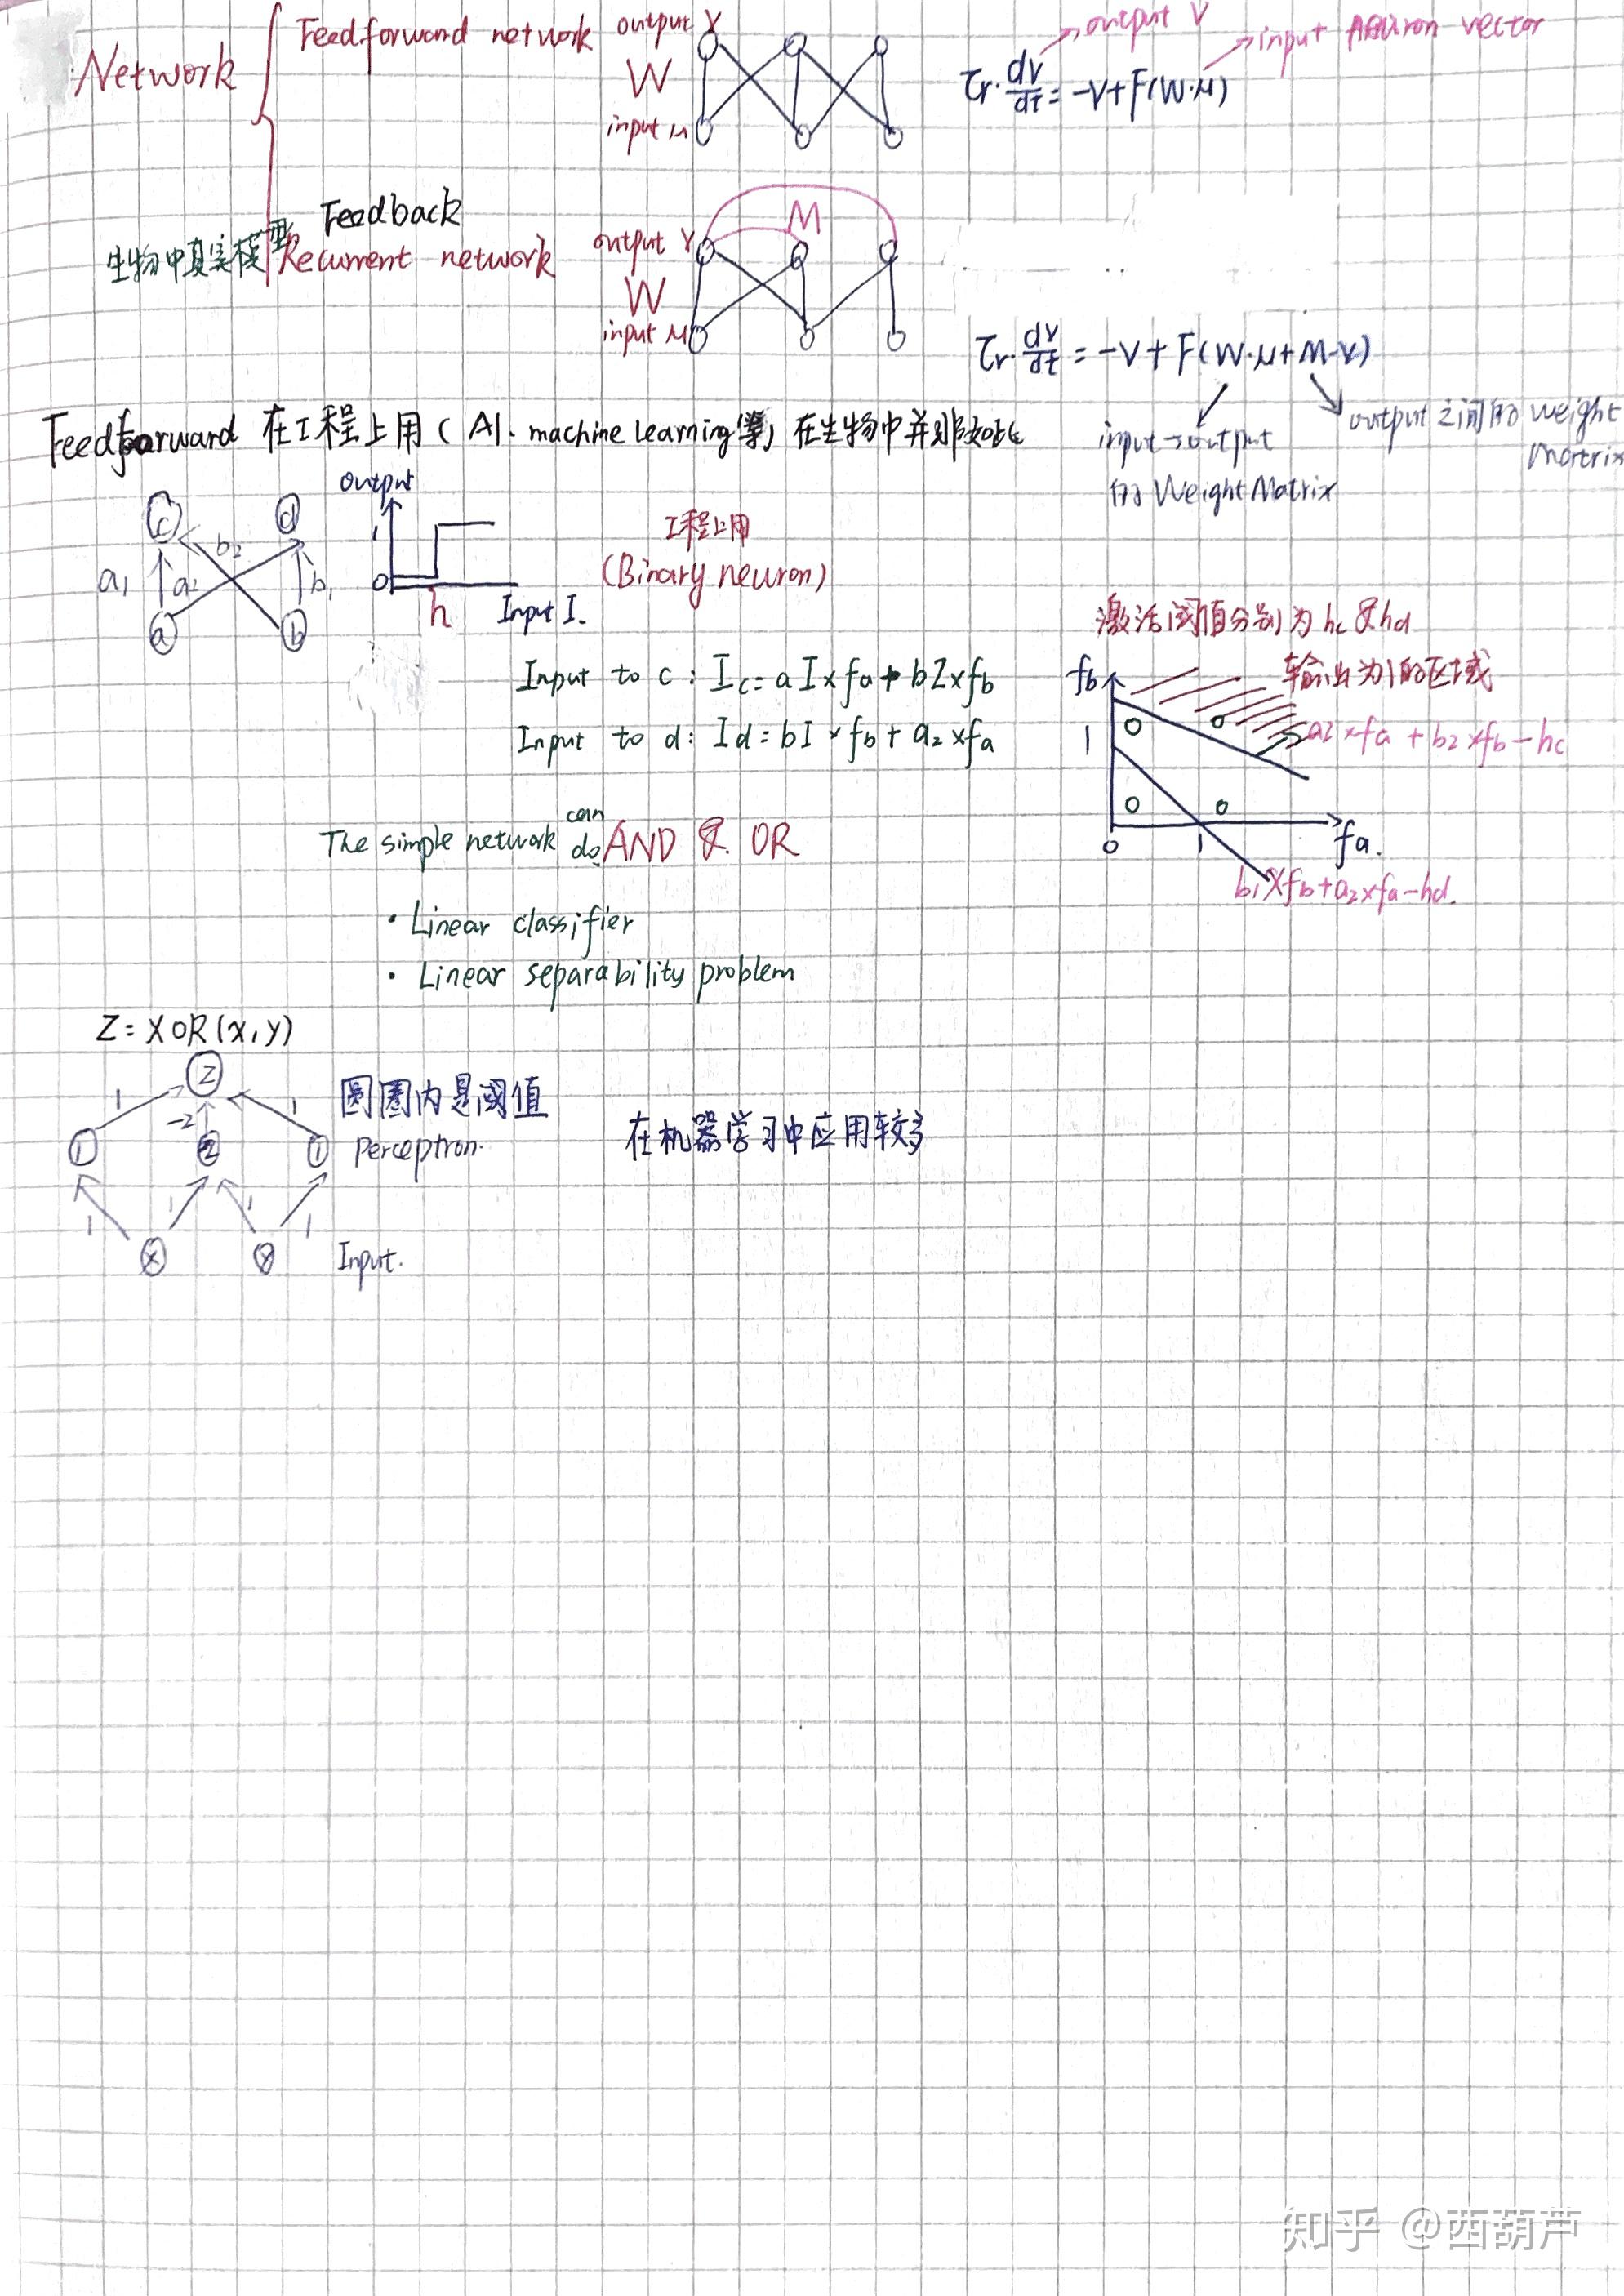 Network
Feedforward network
output V
W
input μ
τr·dv/dt = -v+F(W·μ)
output V
input neuron vector
生物中真实模型
Feedback
Recurrent network
output V
M
W
input μ
τr·dv/dt = -v+F(W·μ+M·v)
input→output
的WeightMatrix
output之间的weight
Matrix
Feedforward 在工程上用(AI. machine learning等) 在生物中并非如此
c d
a1 a2 b2 b1
a b
Output
1
0
h
Input I.
工程上用
(Binary neuron)
Input to c: Ic=aI×fa+bZ×fb
Input to d: Id=bI×fb+a2×fa
激活阈值分别为hc及hd
fb
输出为1的区域
1
a2×fa+b2×fb-hc
0
1
fa.
b1×fb+a2×fa-hd.
The simple network can do AND & OR
· Linear classifier
· Linear separability problem
Z=XOR(x,y)
Z
1 -2 1
1 2 1
圆圈内是阈值
Perceptron.
在机器学习中应用较多
1 1 1 1
X y
Input.
知乎 @西葫芦